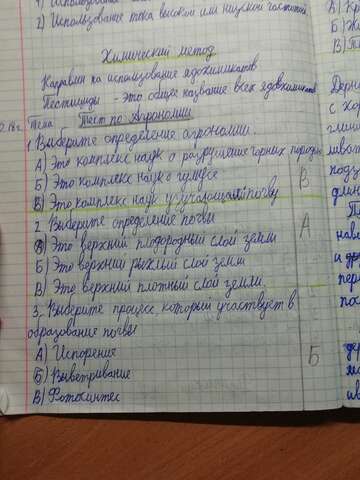 2) Использование тока высокой или низкой частоты
Химический метод
Направлен на использование ядохимикатов
Пестициды - это общее название всех ядохимикатов
Тема Тест по Агрономии
1 Выберите определение агрономии.
А) Это комплекс наук о разрушение горных породах
Б) Это комплекс наук о гумусе
В) Это комплекс наук изучающая почву
В
2. Выберите определение почвы
А
А) Это верхний плодородный слой земли
Б) Это верхний рыхлый слой земли
В) Это верхний плотный слой земли.
3. Выберите процесс, который участвует в
образование почвы
А) Испорение
Б
Б) Выветривание
В) Фотосинтес